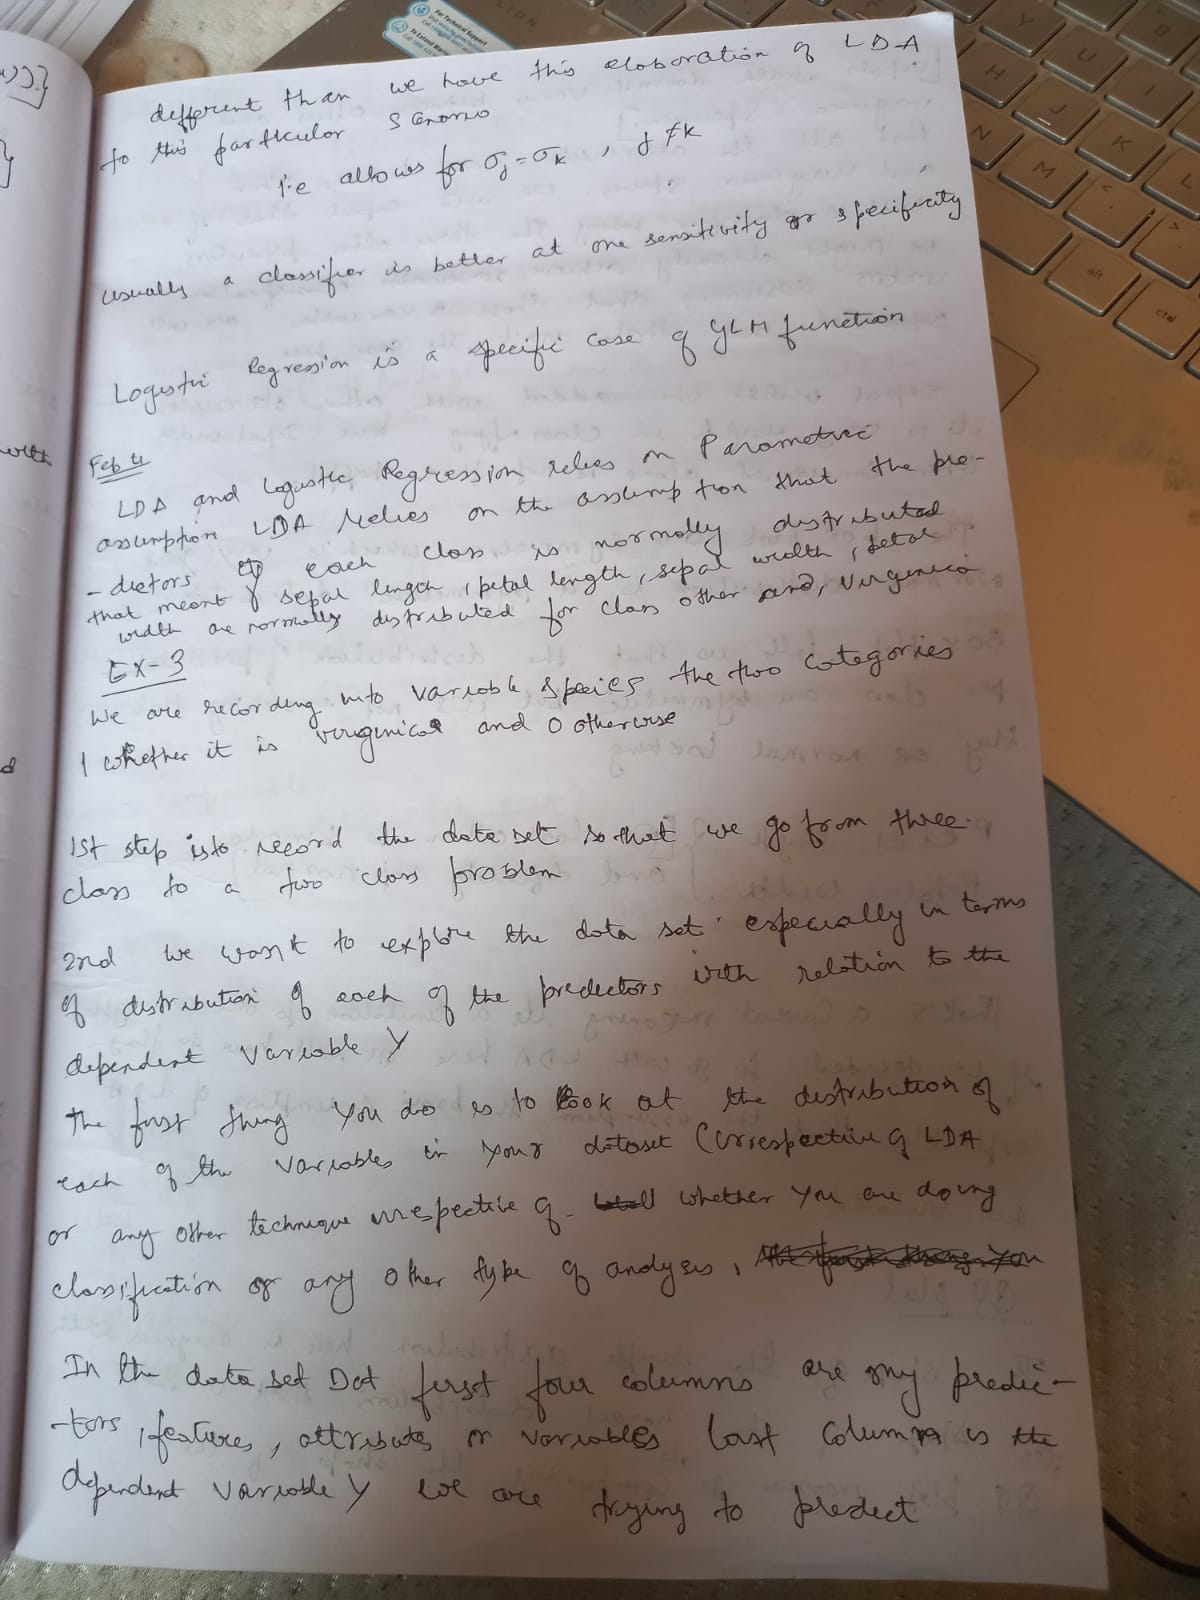 different than we have this eloboration of LDA
to this particular scenario
i.e allows for σj = σk , j ≠ k
usually a classifier is better at one sensitivity or specificity
Logistic Regression is a specific case of GLM function
Feb 4
LDA and Logistic Regression relies on Parametric
assumption LDA relies on the assumption that the pre-
-dictors of each class is normally distributed
that meant sepal length, petal length, sepal width, petal
width are normally distributed for class other and, Virginica
EX-3
We are recording into variable species the two categories
1 whether it is virginica and 0 otherwise
1st step is to record the data set so that we go from three
class to a two class problem
2nd we want to explore the data set especially in terms
of distribution of each of the predictors with relation to the
dependent Variable Y
The first thing you do is to look at the distribution of
each of the variables in your dataset (irrespective of LDA
or any other technique irrespective of whether you are doing
classification or any other type of analysis,
In the data set Dat first four columns are my predic-
-tors, features, attributes or variables last column is the
dependent variable Y we are trying to predict
with
d
For Technical Support
alt
ctrl
Y
U
H
J
K
L
N
M
I